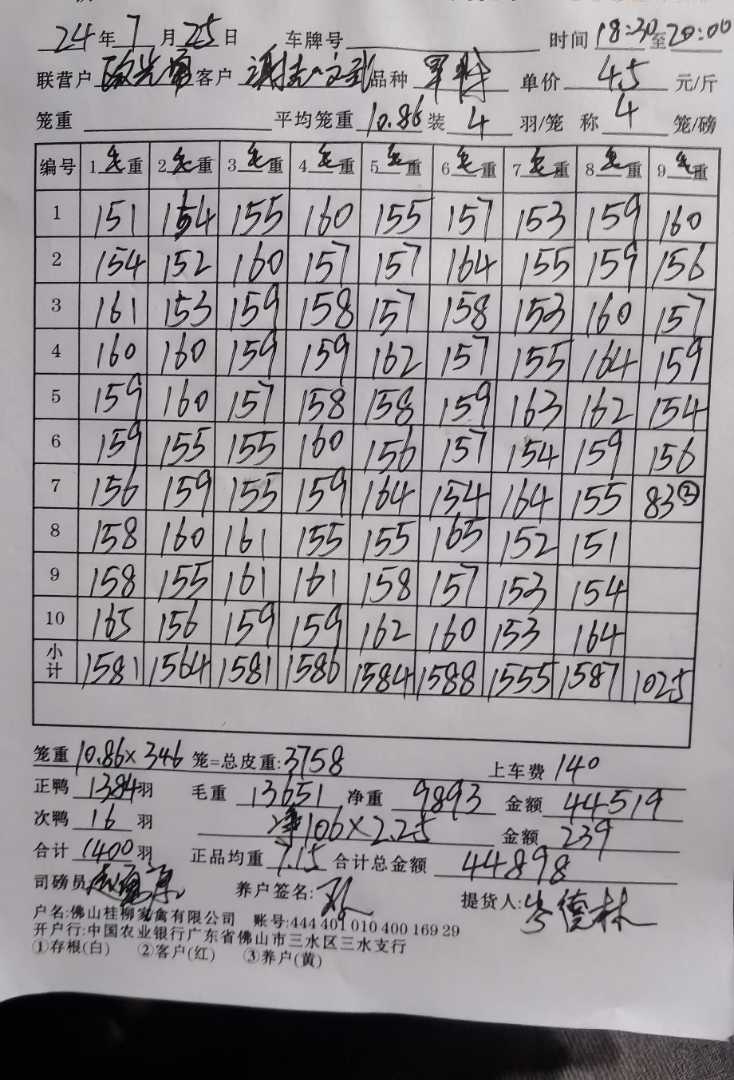 24年7月25日 车牌号 时间 18:30至20:00
联营户 客户 品种 单价 4.5 元/斤
笼重 平均笼重 10.86 装 4 羽/笼 称 4 笼/磅
编号 1 毛重 2 毛重 3 毛重 4 毛重 5 毛重 6 毛重 7 毛重 8 毛重 9 毛重
1 151 154 155 160 155 157 153 159 160
2 154 152 160 157 157 164 155 159 156
3 161 153 159 158 157 158 153 160 157
4 160 160 159 159 162 157 155 164 159
5 159 160 157 158 158 159 163 162 154
6 159 155 155 160 156 157 154 159 156
7 156 159 155 159 164 154 164 155 83②
8 158 160 161 155 155 165 152 151
9 158 155 161 161 158 157 153 154
10 165 156 159 159 162 160 153 164
小计 1581 1564 1581 1586 1584 1588 1555 1587 1025
笼重 10.86×346 笼=总皮重:3758 上车费 140
正鸭 1384 羽 毛重 13651 净重 9893 金额 44519
次鸭 16 羽 净106×2.25 金额 239
合计 1400 羽 正品均重 7.15 合计总金额 44898
司磅员 养户签名: 提货人: 岑德林
户名:佛山桂柳家禽有限公司 账号:444 401 010 400 169 29
开户行:中国农业银行广东省佛山市三水区三水支行
①存根(白) ②客户(红) ③养户(黄)